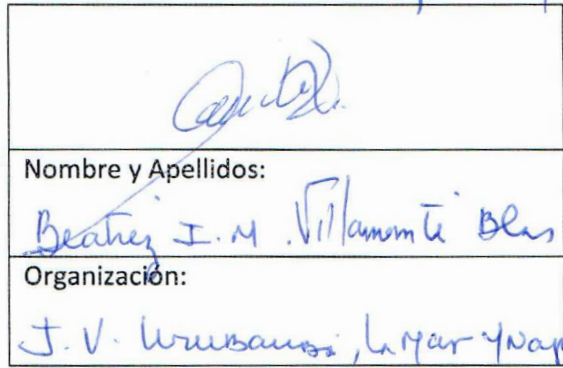 Nombre y Apellidos:
Beatriz I. M. Villamonte Blas
Organización:
J. V. Urubamba, La Mar y